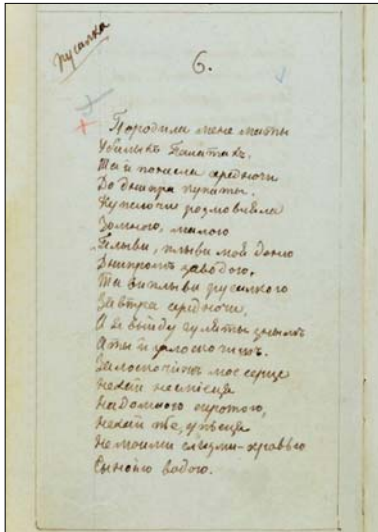 Русалка
6.
Породила мене маты
У билыхъ Палатахъ,
Та й понесла середночи
До Днипра купаты.
Купаючие розмовляла
Зомною, малою
Плывы, плывы моя доню
Днипромъ заводою,
Та выплывы русалкою
Завтра середночи,
А я выйду гуляты знымъ
Аты й залоскочишъ.
Залоскочишъ моє серце
Нехай несміеця
Надомною сыротою,
Нехай пье, упьеця
Немоими слёзмы-кровью
Сыньою водою.